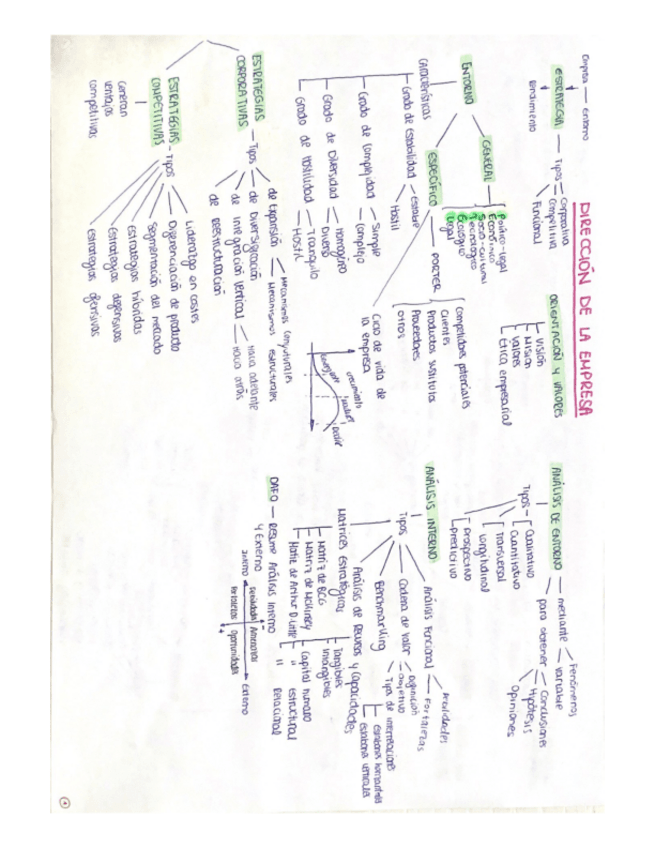 DIRECCIÓN DE LA EMPRESA
Empresa — Entorno
ESTRATEGIA — Tipos
Corporativa
Competitiva
Funcional
Rendimiento
ORIENTACIÓN Y VALORES
Visión
Misión
Valores
Ética empresarial
ENTORNO
GENERAL
Político-legal
Económico
Socio-cultural
Tecnológico
Ecológico
Legal
ESPECÍFICO — PORTER
Competidores potenciales
Clientes
Productos sustitutos
Proveedores
otros
Ciclo de vida de
la empresa
crecimiento
madurez
declive
CARACTERÍSTICAS
Grado de estabilidad
estable
Hostil
Grado de complejidad
Simple
Complejo
Grado de Diversidad
Homogéneo
Diverso
Grado de Hostilidad
Tranquilo
Hostil
ESTRATEGIAS
CORPORATIVAS — Tipos
de Expansión
Mecanismos coyunturales
Mecanismos estructurales
de Diversificación
de integración vertical
hacia adelante
hacia atrás
de REESTRUCTURACIÓN
ESTRATEGIAS
COMPETITIVAS - Tipos
Generan
ventajas
competitivas
Liderazgo en costes
Diferenciación de producto
Segmentación del mercado
Estrategias híbridas
Estrategias defensivas
Estrategias ofensivas
ANÁLISIS DE ENTORNO
mediante
Fenómenos
variable
para obtener
Conclusiones
Hipótesis
Opiniones
Tipos
Cualitativo
Cuantitativo
Transversal
Longitudinal
Prospectivo
Predictivo
ANÁLISIS INTERNO
Tipos
Análisis Funcional
Debilidades
Fortalezas
Cadena de valor
Definición
Objetivo
Tipos de interrelaciones
Benchmarking
Análisis de Recursos y Capacidades
Tangibles
Intangibles
Capital humano
" estructural
" Relacional
Matrices Estratégicas
Matriz de BCG
Matriz de McKinsey
Matriz de Arthur D Little
DAFO — Resume Análisis Interno
y Externo
Interno
Externo
Debilidades
Amenazas
Fortalezas
Oportunidades